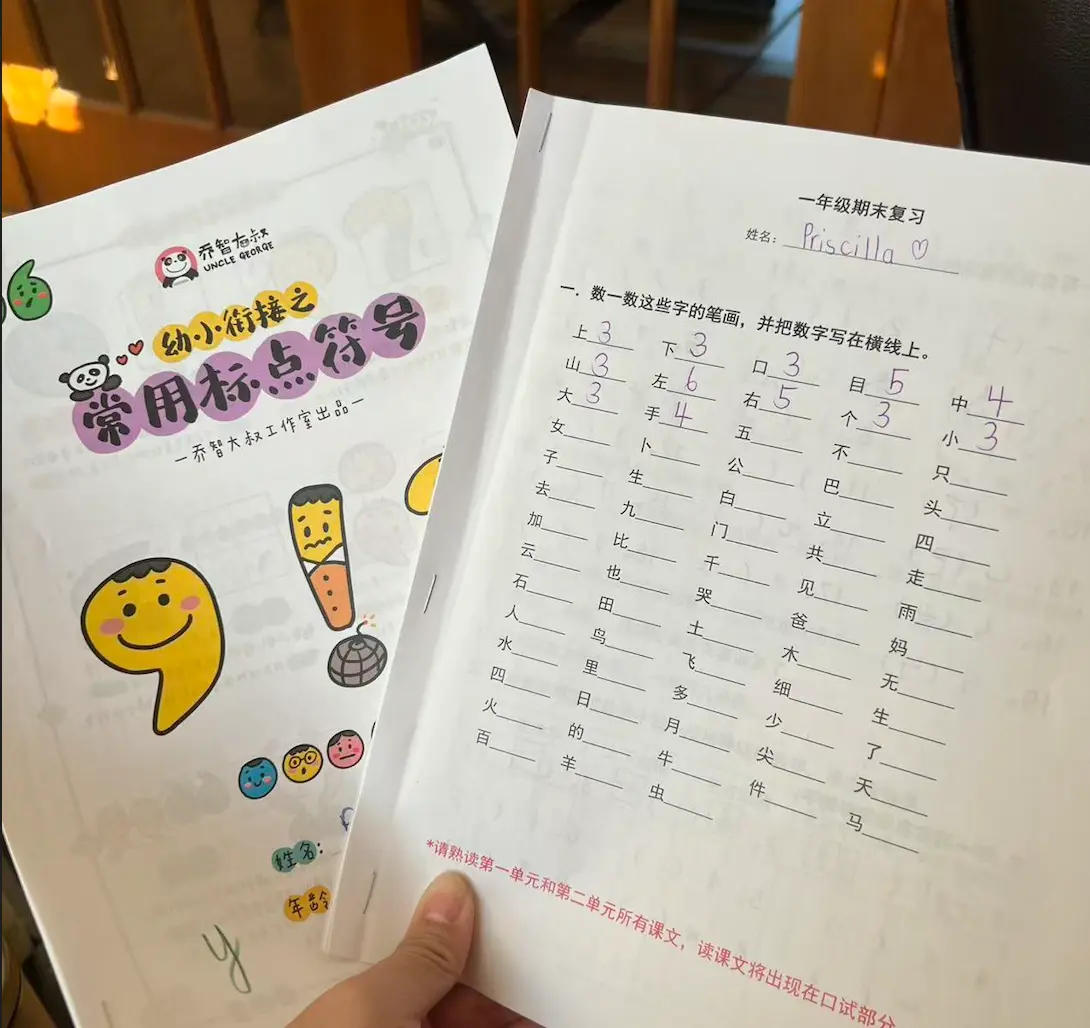 乔智大叔
UNCLE GEORGE
幼小衔接之
常用标点符号
—乔智大叔工作室出品—
姓名:
年龄
y
一年级期末复习
姓名: Priscilla ♡
一. 数一数这些字的笔画，并把数字写在横线上。
上 3 下 3 口 3 目 5 中 4
山 3 左 6 右 5 个 3 小 3
大 3 手 4 五____ 不____ 只____
女____ 卜____ 公____ 巴____ 头____
子____ 生____ 白____ 立____ 四____
去____ 九____ 门____ 共____ 走____
加____ 比____ 千____ 见____ 雨____
云____ 也____ 哭____ 爸____ 妈____
石____ 田____ 土____ 木____ 无____
人____ 鸟____ 飞____ 细____ 生____
水____ 里____ 多____ 少____ 了____
四____ 日____ 月____ 尖____ 天____
火____ 的____ 牛____ 件____ 马____
百____ 羊____ 虫____
*请熟读第一单元和第二单元所有课文，读课文将出现在口试部分